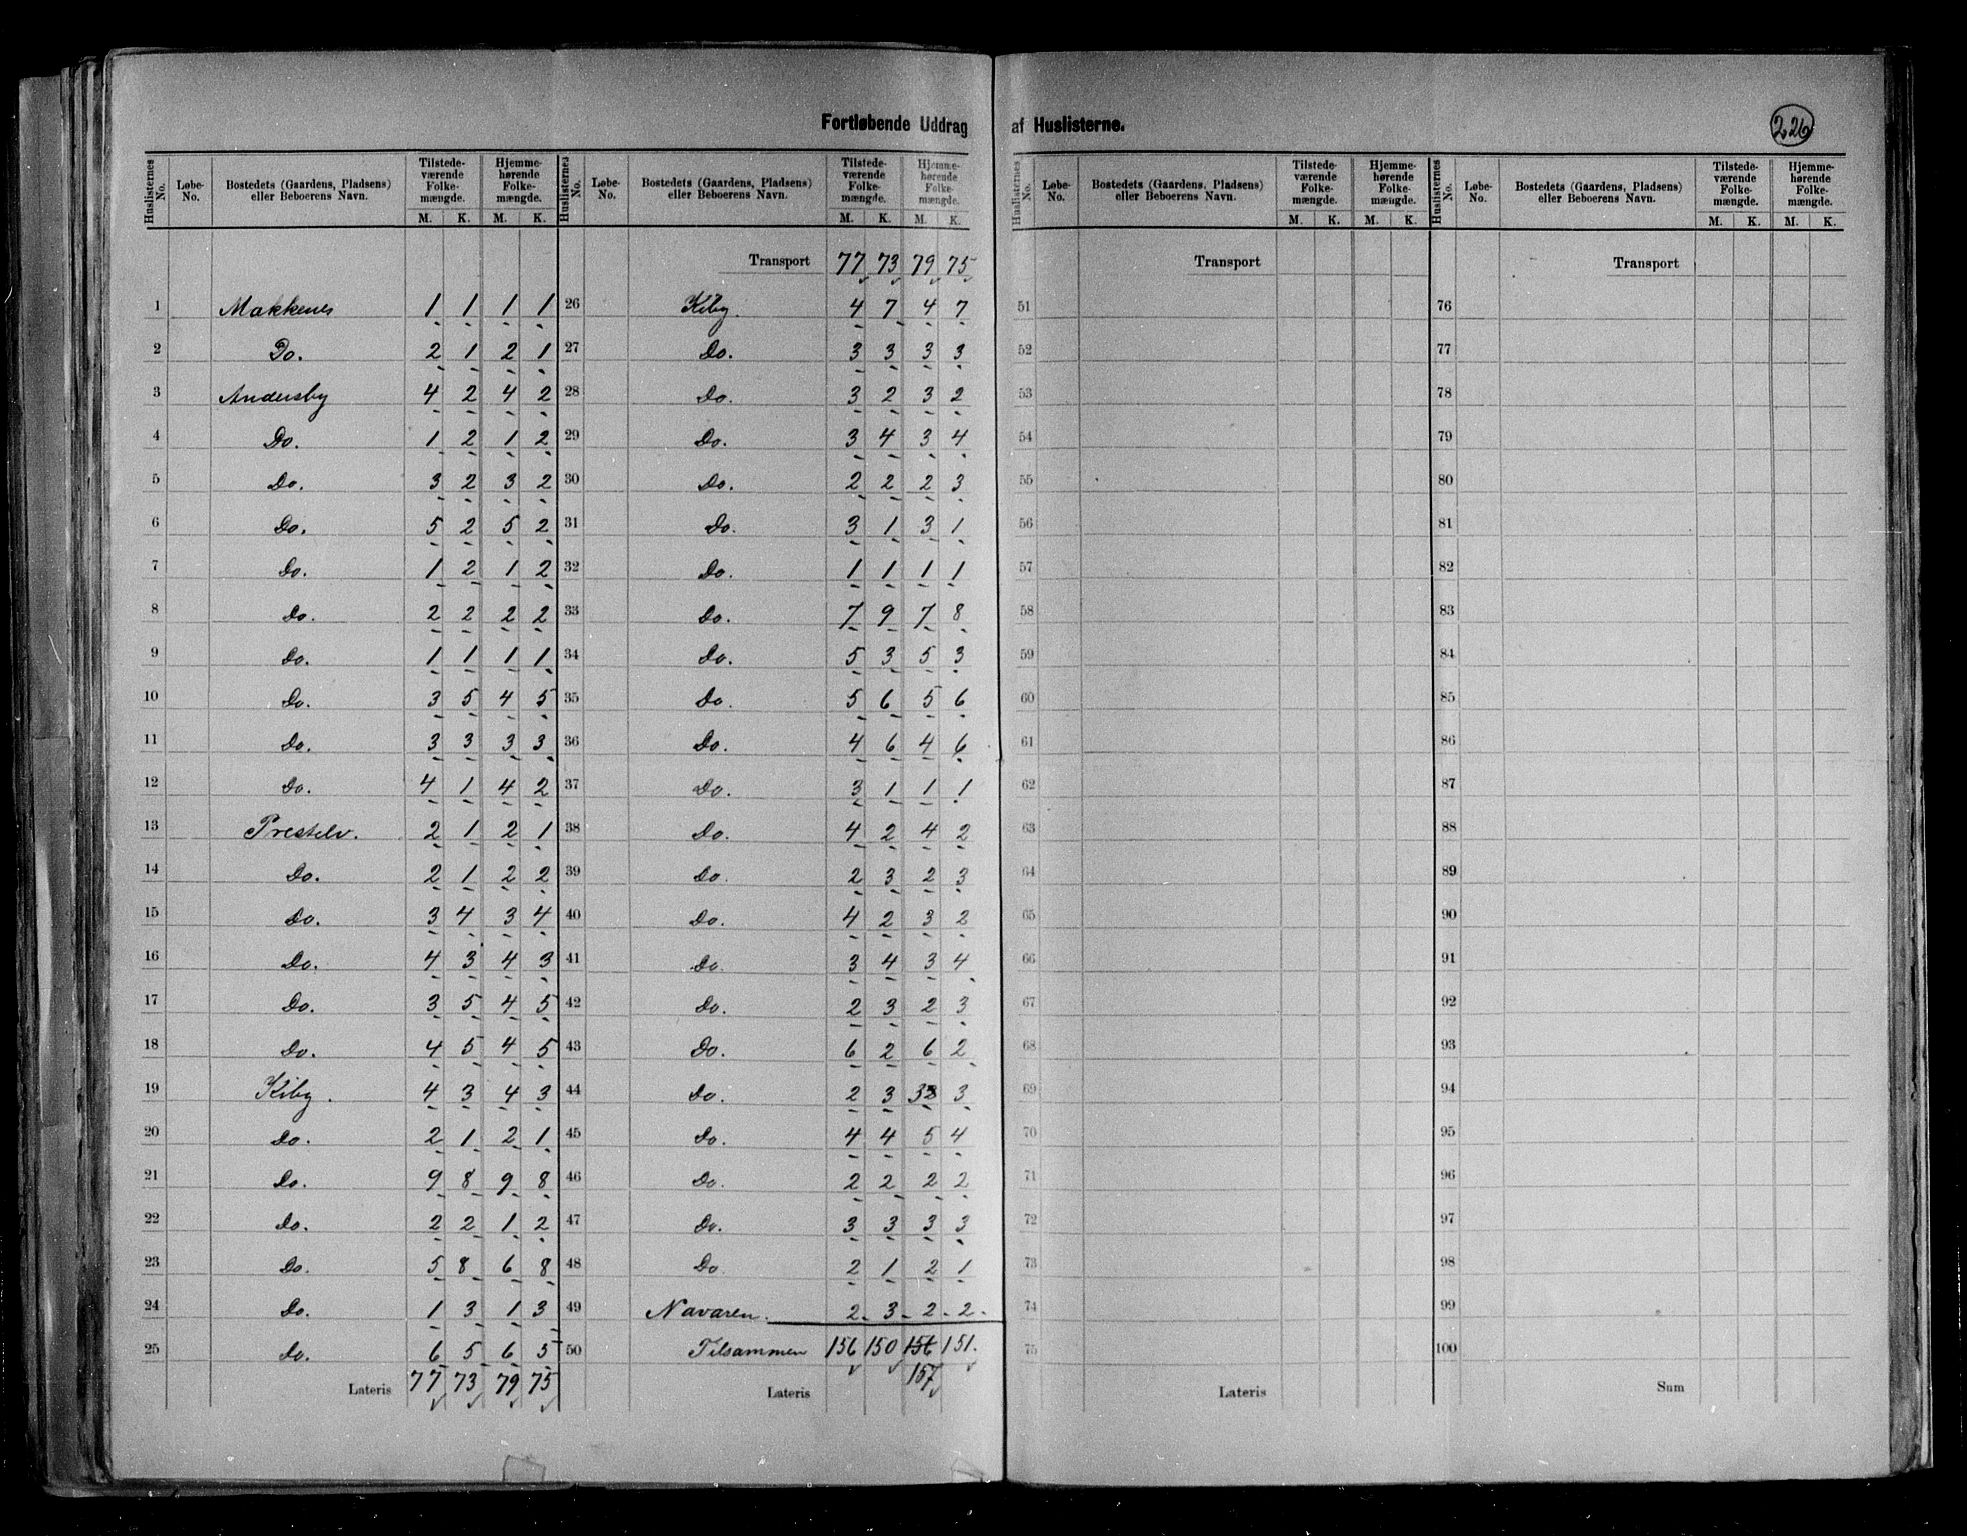 Fortløbende Uddrag af Huslisterne.
226
Huslisternes No. | Løbe-No. | Bostedets (Gaardens, Pladsens) eller Beboerens Navn. | Tilstedeværende Folkemængde. M. K. | Hjemmehørende Folkemængde. M. K.
1 Makkenes 1 1 1 1
2 Do. 2 1 2 1
3 Andersby 4 2 4 2
4 Do. 1 2 1 2
5 Do. 3 2 3 2
6 Do. 5 2 5 2
7 Do. 1 2 1 2
8 Do. 2 2 2 2
9 Do. 1 1 1 1
10 Do. 3 5 4 5
11 Do. 3 3 3 3
12 Do. 4 1 4 2
13 Prestelv. 2 1 2 1
14 Do. 2 1 2 2
15 Do. 3 4 3 4
16 Do. 4 3 4 3
17 Do. 3 5 4 5
18 Do. 4 5 4 5
19 Kiby. 4 3 4 3
20 Do. 2 1 2 1
21 Do. 9 8 9 8
22 Do. 2 2 1 2
23 Do. 5 8 6 8
24 Do. 1 3 1 3
25 Do. 6 5 6 5
Lateris 77 73 79 75
Huslisternes No. | Løbe-No. | Bostedets (Gaardens, Pladsens) eller Beboerens Navn. | Tilstedeværende Folkemængde. M. K. | Hjemmehørende Folkemængde. M. K.
Transport 77 73 79 75
26 Kiby. 4 7 4 7
27 Do. 3 3 3 3
28 Do. 3 2 3 2
29 Do. 3 4 3 4
30 Do. 2 2 2 3
31 Do. 3 1 3 1
32 Do. 1 1 1 1
33 Do. 7 9 7 8
34 Do. 5 3 5 3
35 Do. 5 6 5 6
36 Do. 4 6 4 6
37 Do. 3 1 1 1
38 Do. 4 2 4 2
39 Do. 2 3 2 3
40 Do. 4 2 3 2
41 Do. 3 4 3 4
42 Do. 2 3 2 3
43 Do. 6 2 6 2
44 Do. 2 3 3 3
45 Do. 4 4 5 4
46 Do. 2 2 2 2
47 Do. 3 3 3 3
48 Do. 2 1 2 1
49 Navaren. 2 3 2 2
50 Tilsammen 156 150 156 151.
157
Lateris
Huslisternes No. | Løbe-No. | Bostedets (Gaardens, Pladsens) eller Beboerens Navn. | Tilstedeværende Folkemængde. M. K. | Hjemmehørende Folkemængde. M. K.
Transport
51
52
53
54
55
56
57
58
59
60
61
62
63
64
65
66
67
68
69
70
71
72
73
74
75
Lateris
Huslisternes No. | Løbe-No. | Bostedets (Gaardens, Pladsens) eller Beboerens Navn. | Tilstedeværende Folkemængde. M. K. | Hjemmehørende Folkemængde. M. K.
Transport
76
77
78
79
80
81
82
83
84
85
86
87
88
89
90
91
92
93
94
95
96
97
98
99
100
Sum